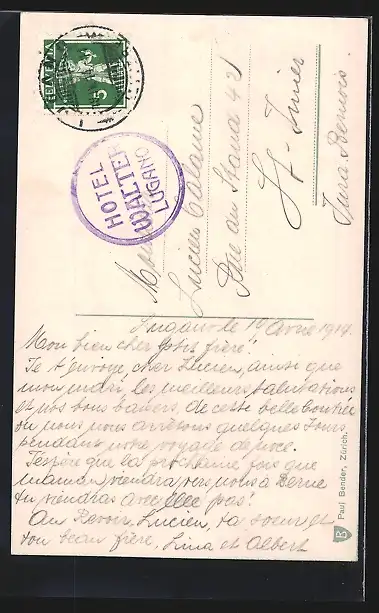 HELVETIA
5
HOTEL
WALTER
LUGANO
Monsieur
Lucien Calame
Rue du Stand 42
St-Imier
Jura Bernois
Lugano le 10 Avril 1914.
Mon bien cher petit frère!
Je t'envoye, cher Lucien, ainsi que
mon mari les meilleurs salutations
et nos bons baisers, de cette belle contrée
où nous nous arrêtons quelques jours
pendant notre voyage de noce.
J'espère que la prochaine fois que
maman viendra vers nous à Berne
tu viendras avec elle pas!
Au Revoir, Lucien, ta soeur et
ton beau frère, Lina et Albert
Paul Bender, Zürich.
B